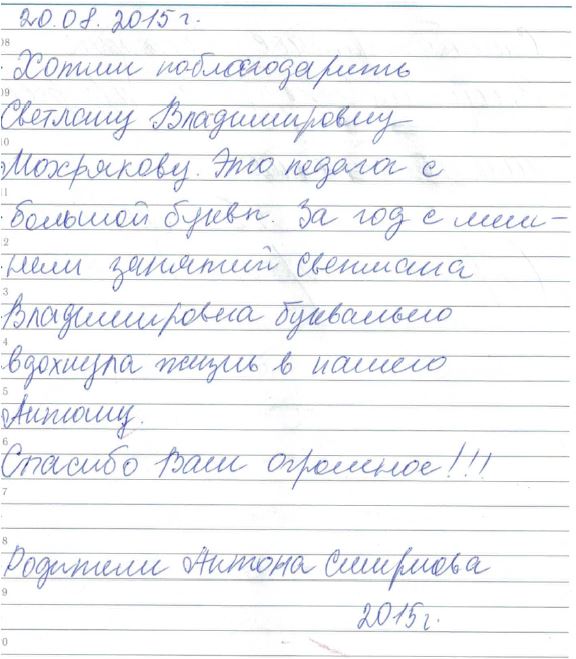 20.08.2015 г.
Хотим поблагодарить
Светлану Владимировну
Мохрякову. Это педагог с
большой буквы. За год с лиш-
ним занятий Светлана
Владимировна буквально
вдохнула жизнь в нашего
Антошу.
Спасибо Вам огромное!!!
Родители Антона Смирнова
2015 г.